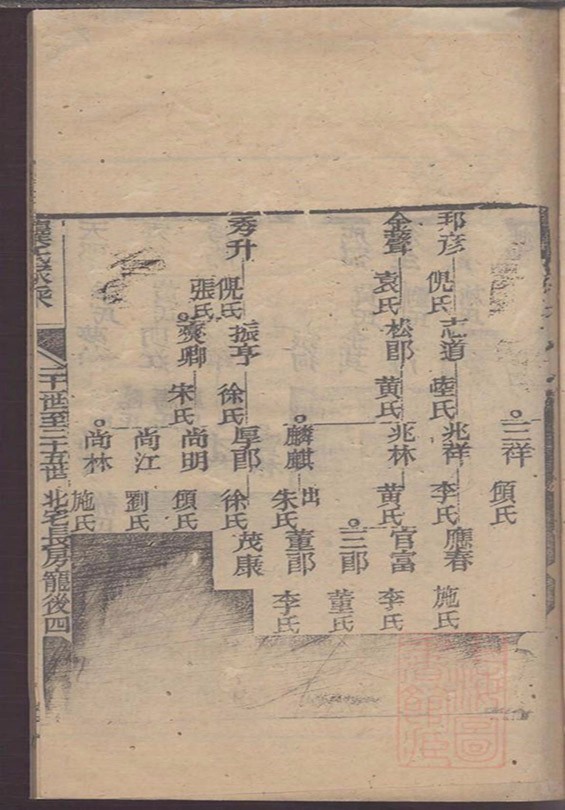 三祥 頋氏
邦彥 倪氏 志道 陸氏 兆祥 李氏 應春 施氏
金聲 袁氏 松郎 黄氏 兆林 黄氏 官富 李氏
三郎 董氏
麟麒 朱氏 出 董郎 李氏
秀升 倪氏 張氏 振亨 徐氏 厚郎 徐氏 茂康
爽卿 宋氏 尚明 頋氏
尚江 劉氏
尚林 施氏
二十一世至二十五世 北宅長房寵後四